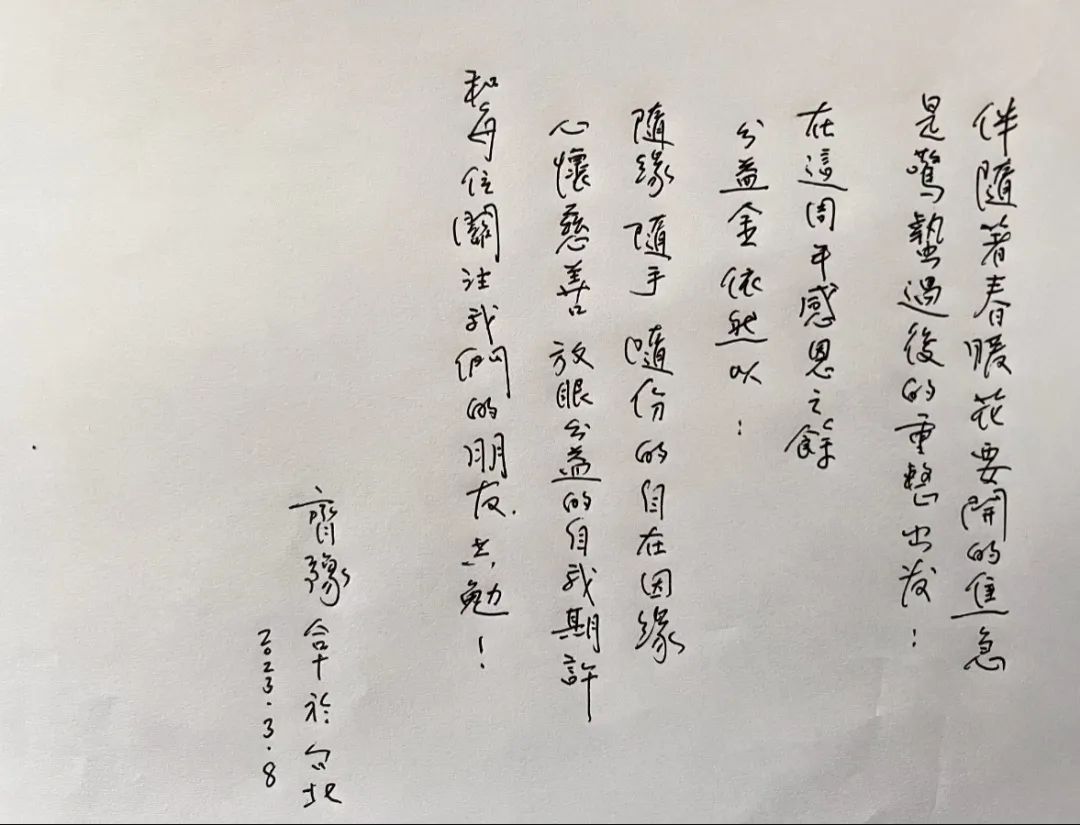 伴隨著春暖花要開的焦急
是驚蟄過後的重整出发：
在這周年感恩之餘
公益金依然以：
隨緣 隨手 隨份的自在因緣
心懷慈善 放眼公益的自我期許
和每位關注我們的朋友.共勉！
齊豫 合十於台北
2023.3.8